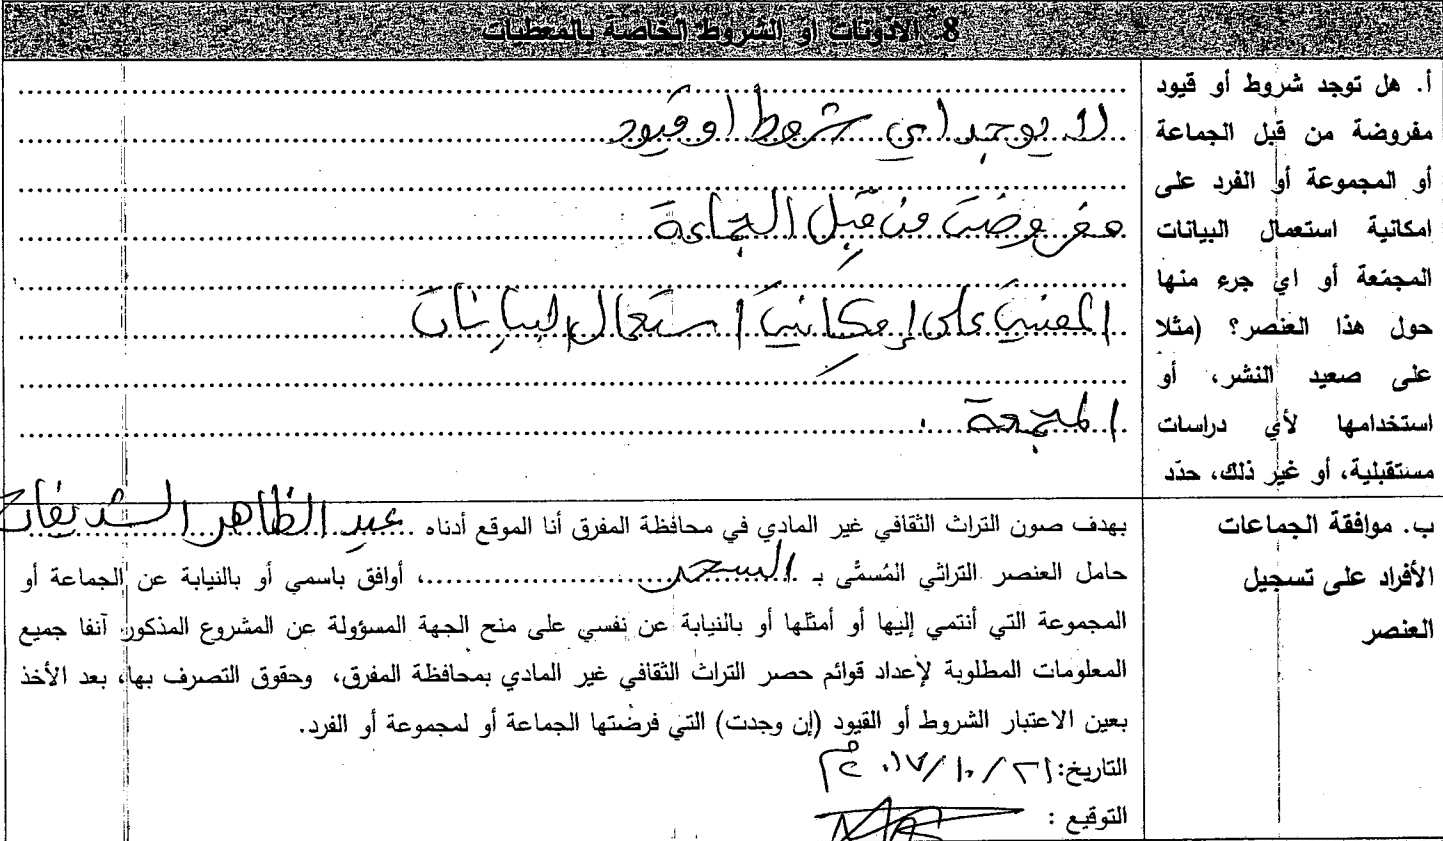 8. الاذونات أو الشروط الخاصة بالمعطيات
أ. هل توجد شروط أو قيود
مفروضة من قبل الجماعة
أو المجموعة أو الفرد على
امكانية استعمال البيانات
المجمّعة أو اي جرء منها
حول هذا العنصر؟ (مثلا
على صعيد النشر، أو
استخدامها لأي دراسات
مستقبلية، أو غير ذلك، حدّد
لا يوجد اي شروط او قيود
مفروضة من قِبل الجماعة
المعنية على إمكانية استعمال البيانات
المجمعة.
ب. موافقة الجماعات
الأفراد على تسجيل
العنصر
بهدف صون التراث الثقافي غير المادي في محافظة المفرق أنا الموقع أدناه عبد الظاهر الشديفات
حامل العنصر التراثي المُسمّى بـ السحر، أوافق باسمي أو بالنيابة عن الجماعة أو
المجموعة التي أنتمي إليها أو أمثلها أو بالنيابة عن نفسي على منح الجهة المسؤولة عن المشروع المذكور آنفا جميع
المعلومات المطلوبة لإعداد قوائم حصر التراث الثقافي غير المادي بمحافظة المفرق، وحقوق التصرف بها، بعد الأخذ
بعين الاعتبار الشروط أو القيود (إن وجدت) التي فرضتها الجماعة أو لمجموعة أو الفرد.
التاريخ: ٢١/ ١٠/ ٢٠١٧م
التوقيع :